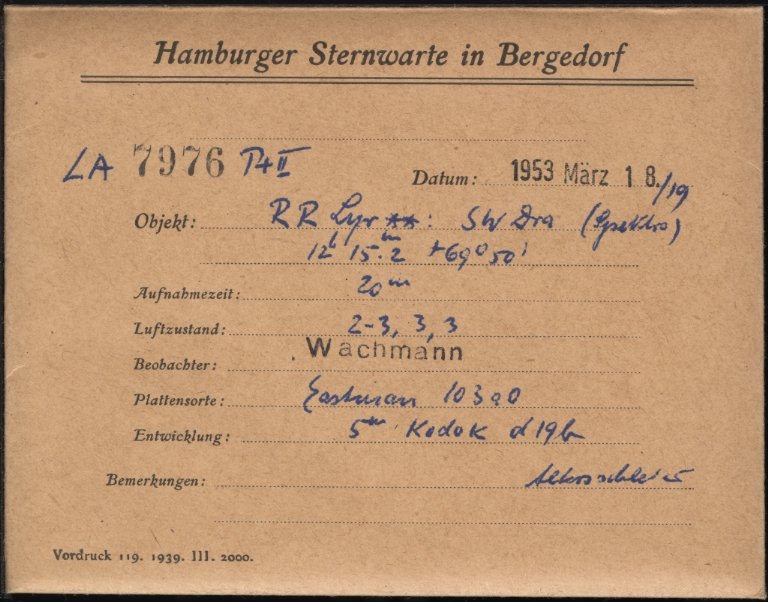 Hamburger Sternwarte in Bergedorf
LA 7976 P+II
Datum: 1953 März 18./19
Objekt: RR Lyr **: SW Dra (Spektro)
12h 15.m2 +69° 50'
Aufnahmezeit: 20m
Luftzustand: 2-3, 3, 3
Beobachter: Wachmann
Plattensorte: Eastman 103a0
Entwicklung: 5m Kodak d19b
Bemerkungen:
Vordruck 119. 1939. III. 2000.